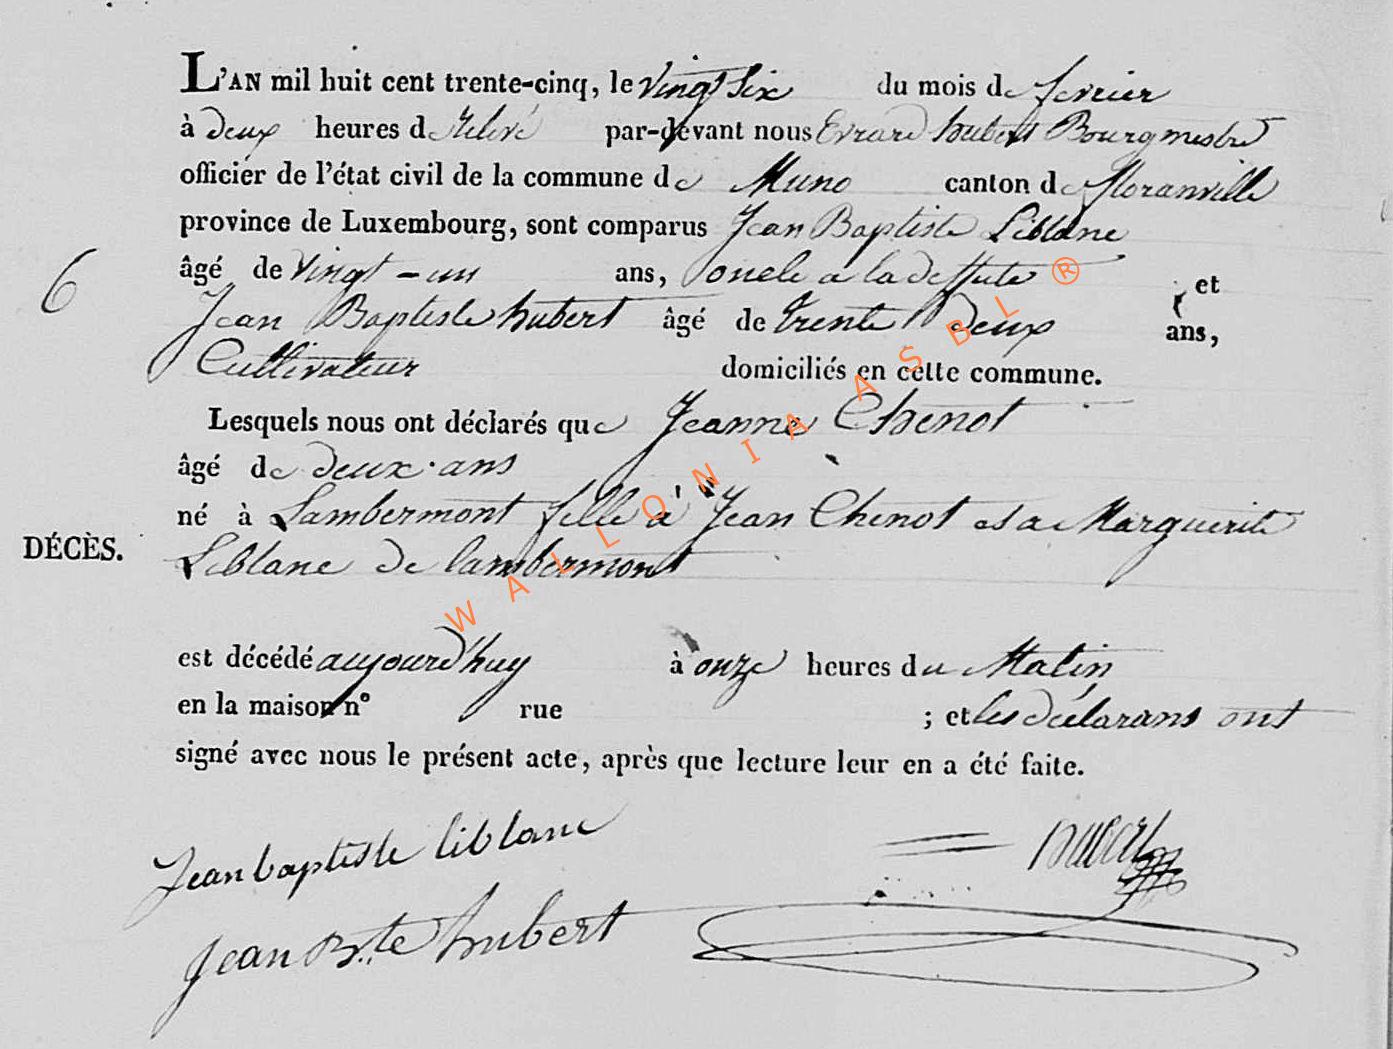 L'AN mil huit cent trente-cinq, le vingt six du mois de fevrier
à deux heures de Relevé par-devant nous Evrard hubert Bourgmestre
officier de l'état civil de la commune de Muno canton de floranville
province de Luxembourg, sont comparus Jean Baptiste Leblanc
âgé de vingt-un ans, oncle a la deffute et
6
Jean Baptiste hubert âgé de trente deux ans,
Cultivateur domiciliés en cette commune.
Lesquels nous ont déclarés que Jeanne Chenot
âgé de deux ans
né à Lambermont fille à Jean Chenot et a Marguerite
DÉCÈS.
Leblanc de lambermont
est décédé aujourd'huy à onze heures du Matin
en la maison nº rue ; et les déclarans ont
signé avec nous le présent acte, après que lecture leur en a été faite.
Jean baptiste leblanc
hubert
Jean Bte hubert
WALLONIA ASBL ®